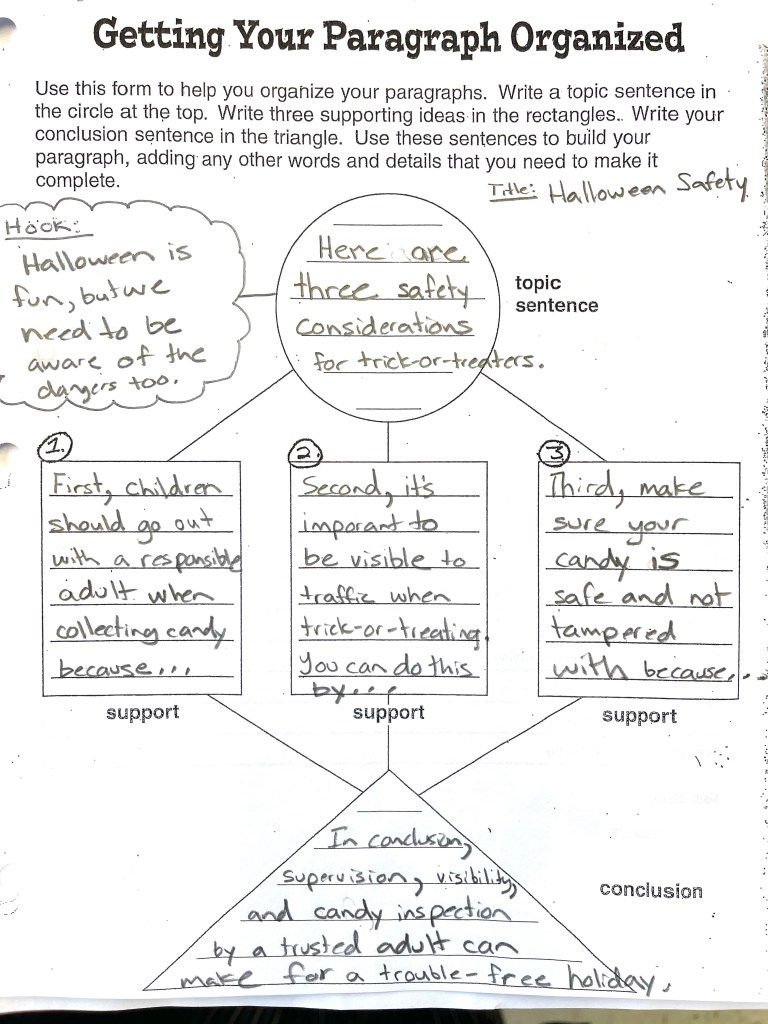 Getting Your Paragraph Organized
Use this form to help you organize your paragraphs. Write a topic sentence in
the circle at the top. Write three supporting ideas in the rectangles. Write your
conclusion sentence in the triangle. Use these sentences to build your
paragraph, adding any other words and details that you need to make it
complete.
Title: Halloween Safety
Hook:
Halloween is
fun, but we
need to be
aware of the
dangers too.
Here are
three safety
considerations
for trick-or-treaters.
topic
sentence
1.
First, children
should go out
with a responsible
adult when
collecting candy
because...
support
2.
Second, it's
imporant to
be visible to
traffic when
trick-or-treating.
You can do this
by...
support
3
Third, make
sure your
candy is
safe and not
tampered
with because...
support
In conclusion,
supervision, visibility,
and candy inspection
by a trusted adult can
make for a trouble-free holiday.
conclusion